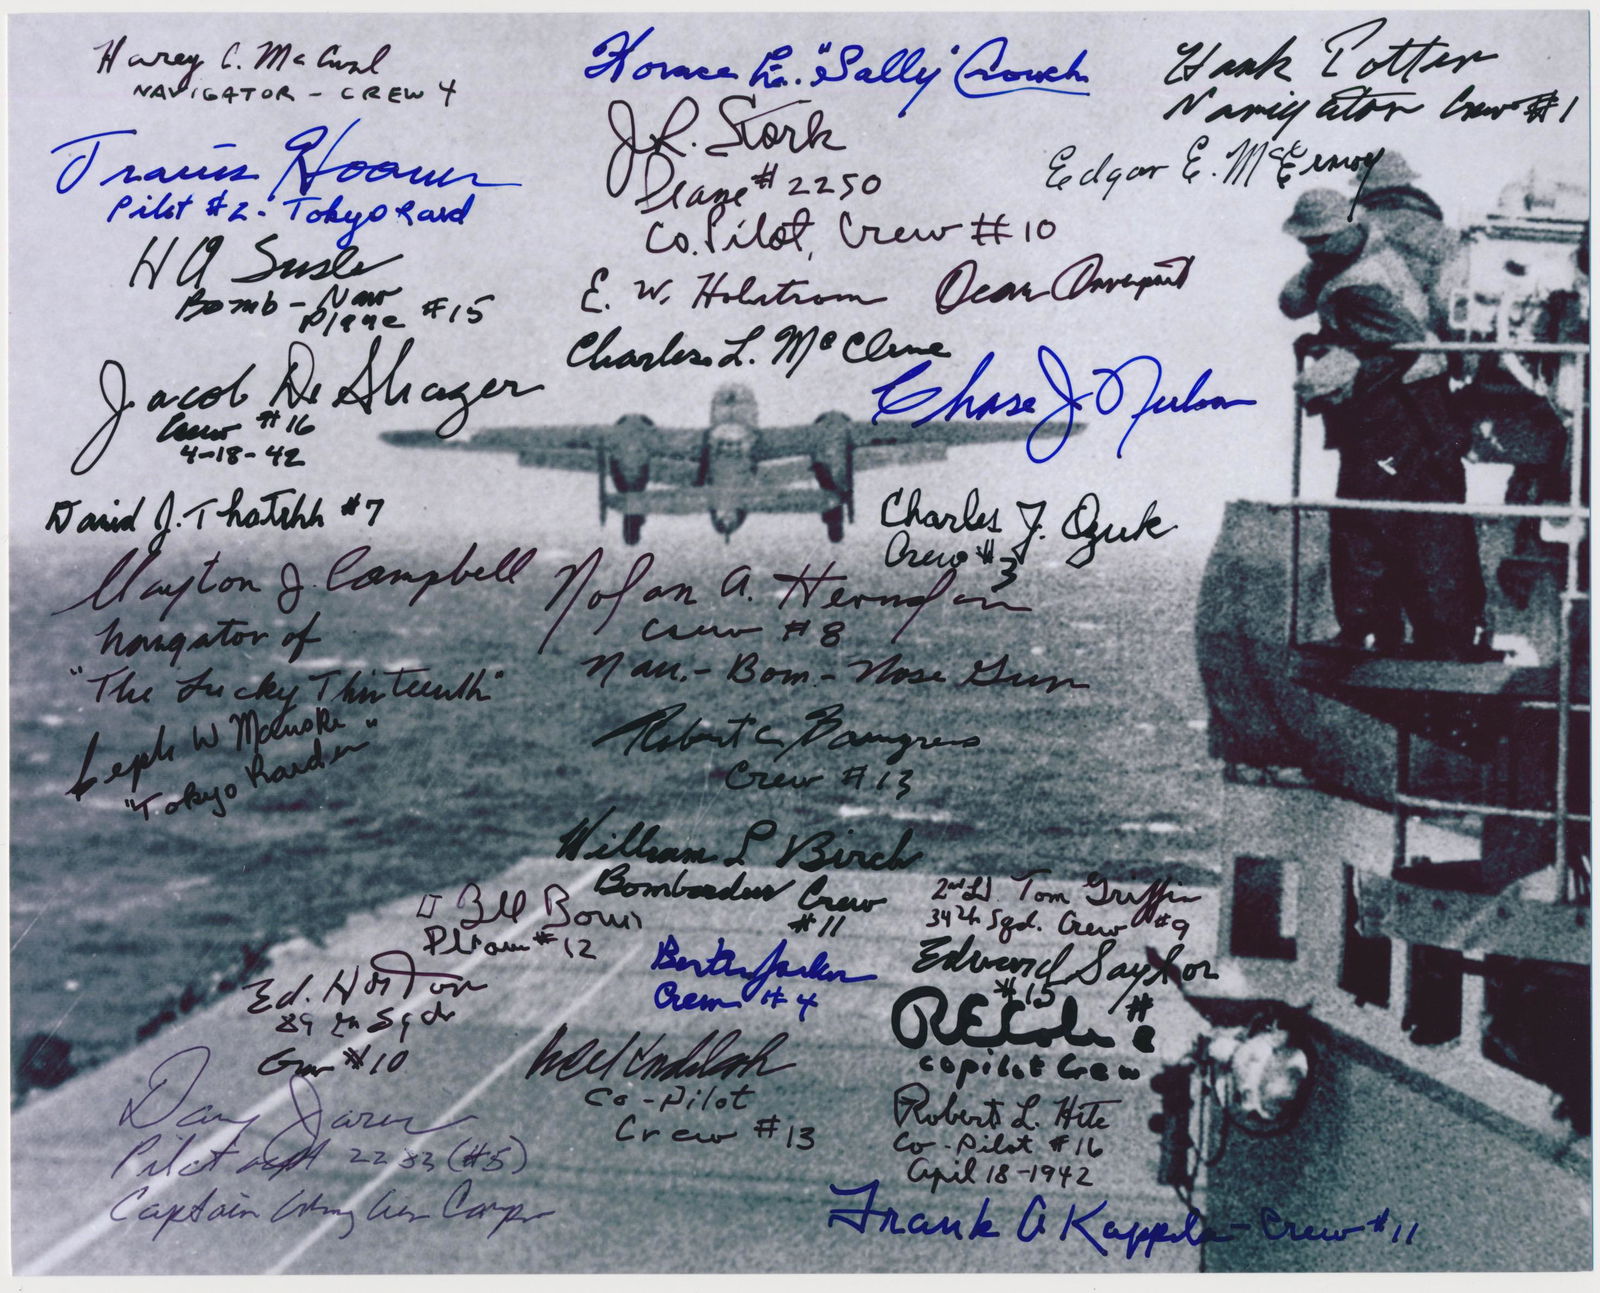 Harry C. McCool
NAVIGATOR - CREW 4
Horace E. "Sally" Crouch
Hank Potter
Navigator Crew #1
Travis Hoover
Pilot #2 - Tokyo Raid
J.R. Stork
Plane # 2250
Co. Pilot, Crew #10
Edgar E. McElroy
H A Sessler
Bomb - Nav
Plane #15
E. W. Holstrom
Dean Davenport
Charles L. McClure
Chase J. Nielsen
Jacob DeShazer
Crew #16
4-18-42
David J. Thatcher #7
Charles J. Ozuk
Crew #3
Clayton J. Campbell
Navigator of
"The Lucky Thirteenth"
Nolan A. Herndon
Crew #8
Nav. - Bom - Nose Gun
Joseph W Manske
"Tokyo Raider"
Robert C Bourgeois
Crew #13
William L Birch
Bombardier Crew
#11
Bill Bower
Plane #12
2nd Lt. Tom Griffin
34th Sqd. Crew #9
Ed. Horton
89th Sqdr
Gun #10
Crew #4
Edward Saylor
#15
R E Cole #
copilot Crew
Co-Pilot
Crew #13
Robert L. Hite
Co-Pilot #16
April 18-1942
Davy Jones
Pilot 2283 (#5)
Captain Army Air Corps
Frank A Kappeler - Crew #11